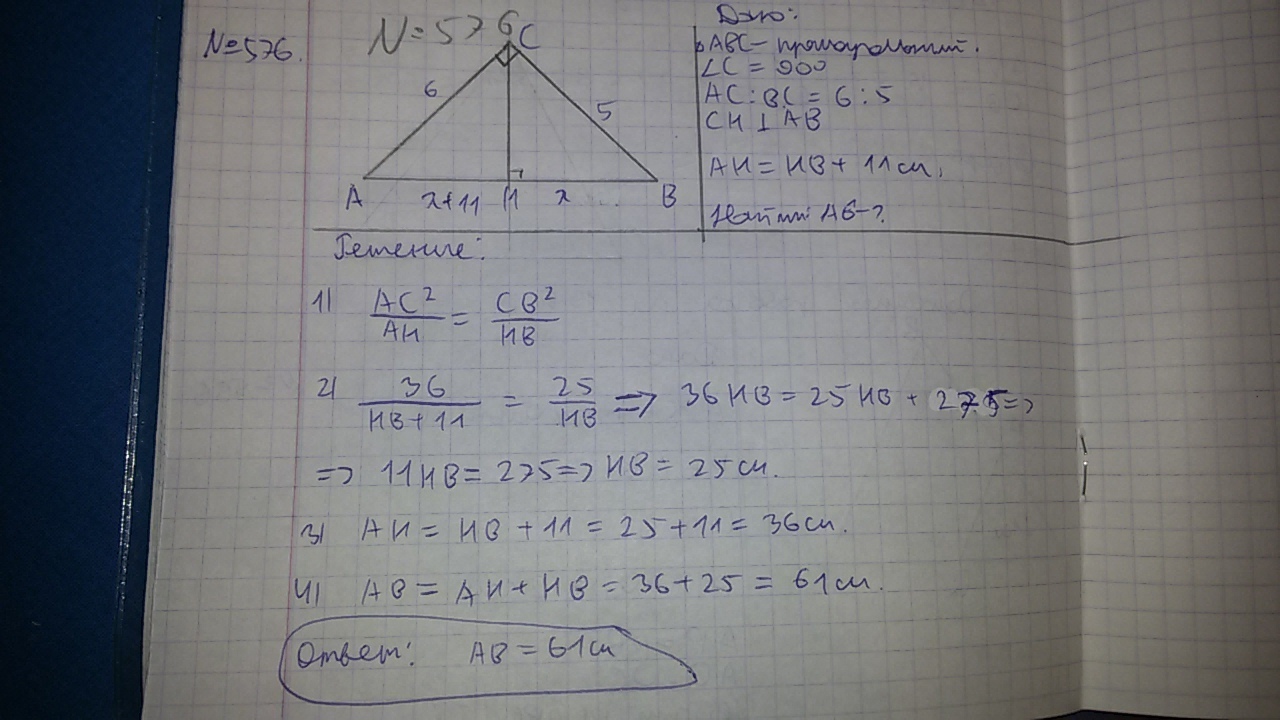 N=576.
N=576
C
6
5
A x+11 H x B
Дано:
ABC - прямоугольный.
∠C = 90°
AC:BC = 6:5
CH ⊥ AB
AH = HB + 11 см.
Найти: AB-?
Решение:
1) AC²/AH = CB²/HB
2) 36/(HB+11) = 25/HB => 36HB = 25HB + 275 =>
=> 11HB = 275 => HB = 25 см.
3) AH = HB + 11 = 25+11 = 36 см.
4) AB = AH + HB = 36+25 = 61 см.
Ответ: AB = 61 см